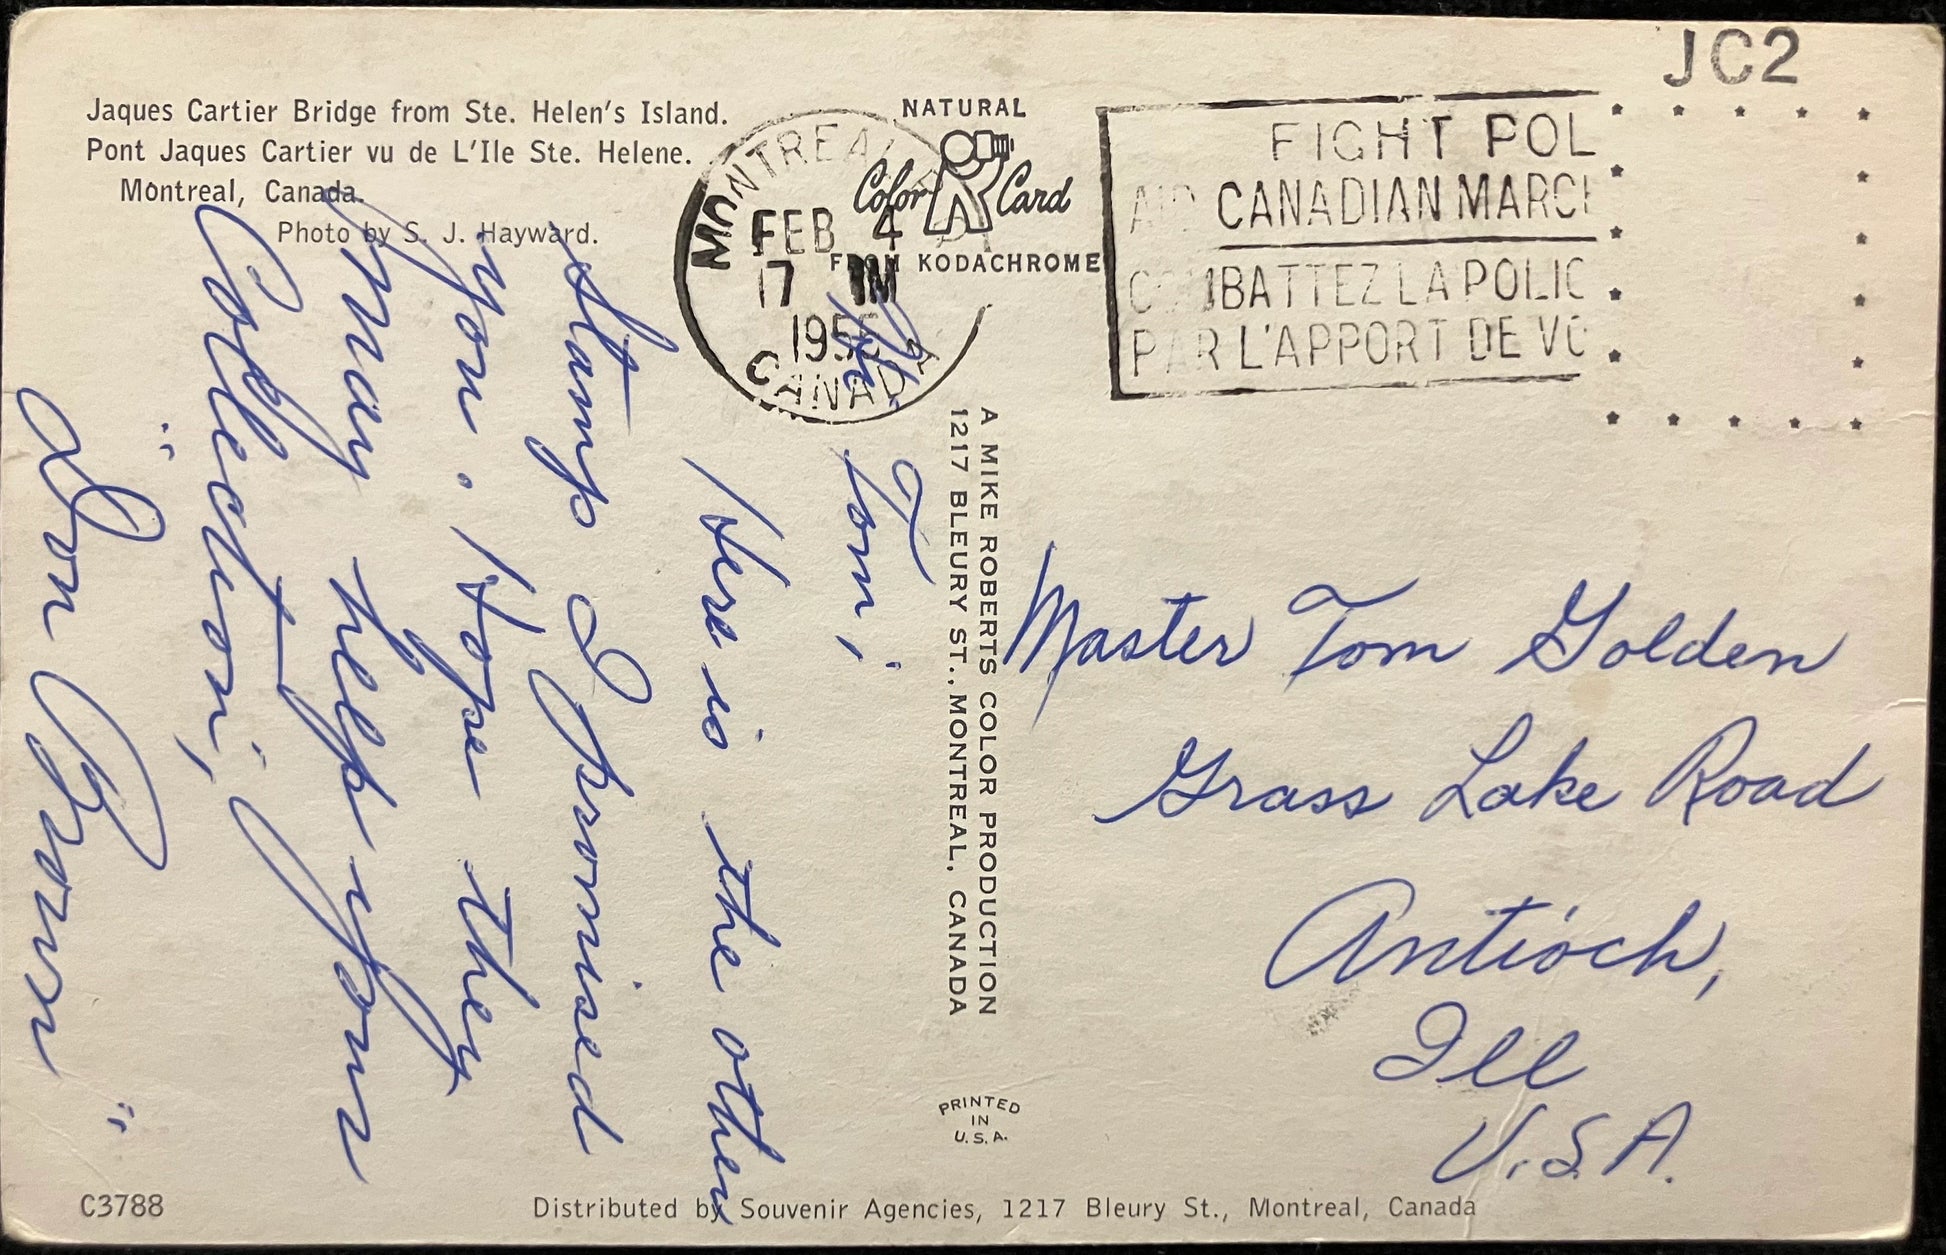 Jaques Cartier Bridge from Ste. Helen's Island.
Pont Jaques Cartier vu de L'Ile Ste. Helene.
Montreal, Canada.
Photo by S. J. Hayward.
NATURAL
Color Card
FROM KODACHROME
MONTREAL
FEB 4
17
CANADA
JC2
FIGHT POL
AID CANADIAN MARCH
COMBATTEZ LA POLIO
PAR L'APPORT DE VO
Tom,
Here is the other
stamp I promised
you. Hope they
may help your
Collection,
"Don Brown"
A MIKE ROBERTS COLOR PRODUCTION
1217 BLEURY ST., MONTREAL, CANADA
Master Tom Golden
Grass Lake Road
Antioch,
Ill
U.S.A.
PRINTED
IN
U.S.A.
C3788
Distributed by Souvenir Agencies, 1217 Bleury St., Montreal, Canada